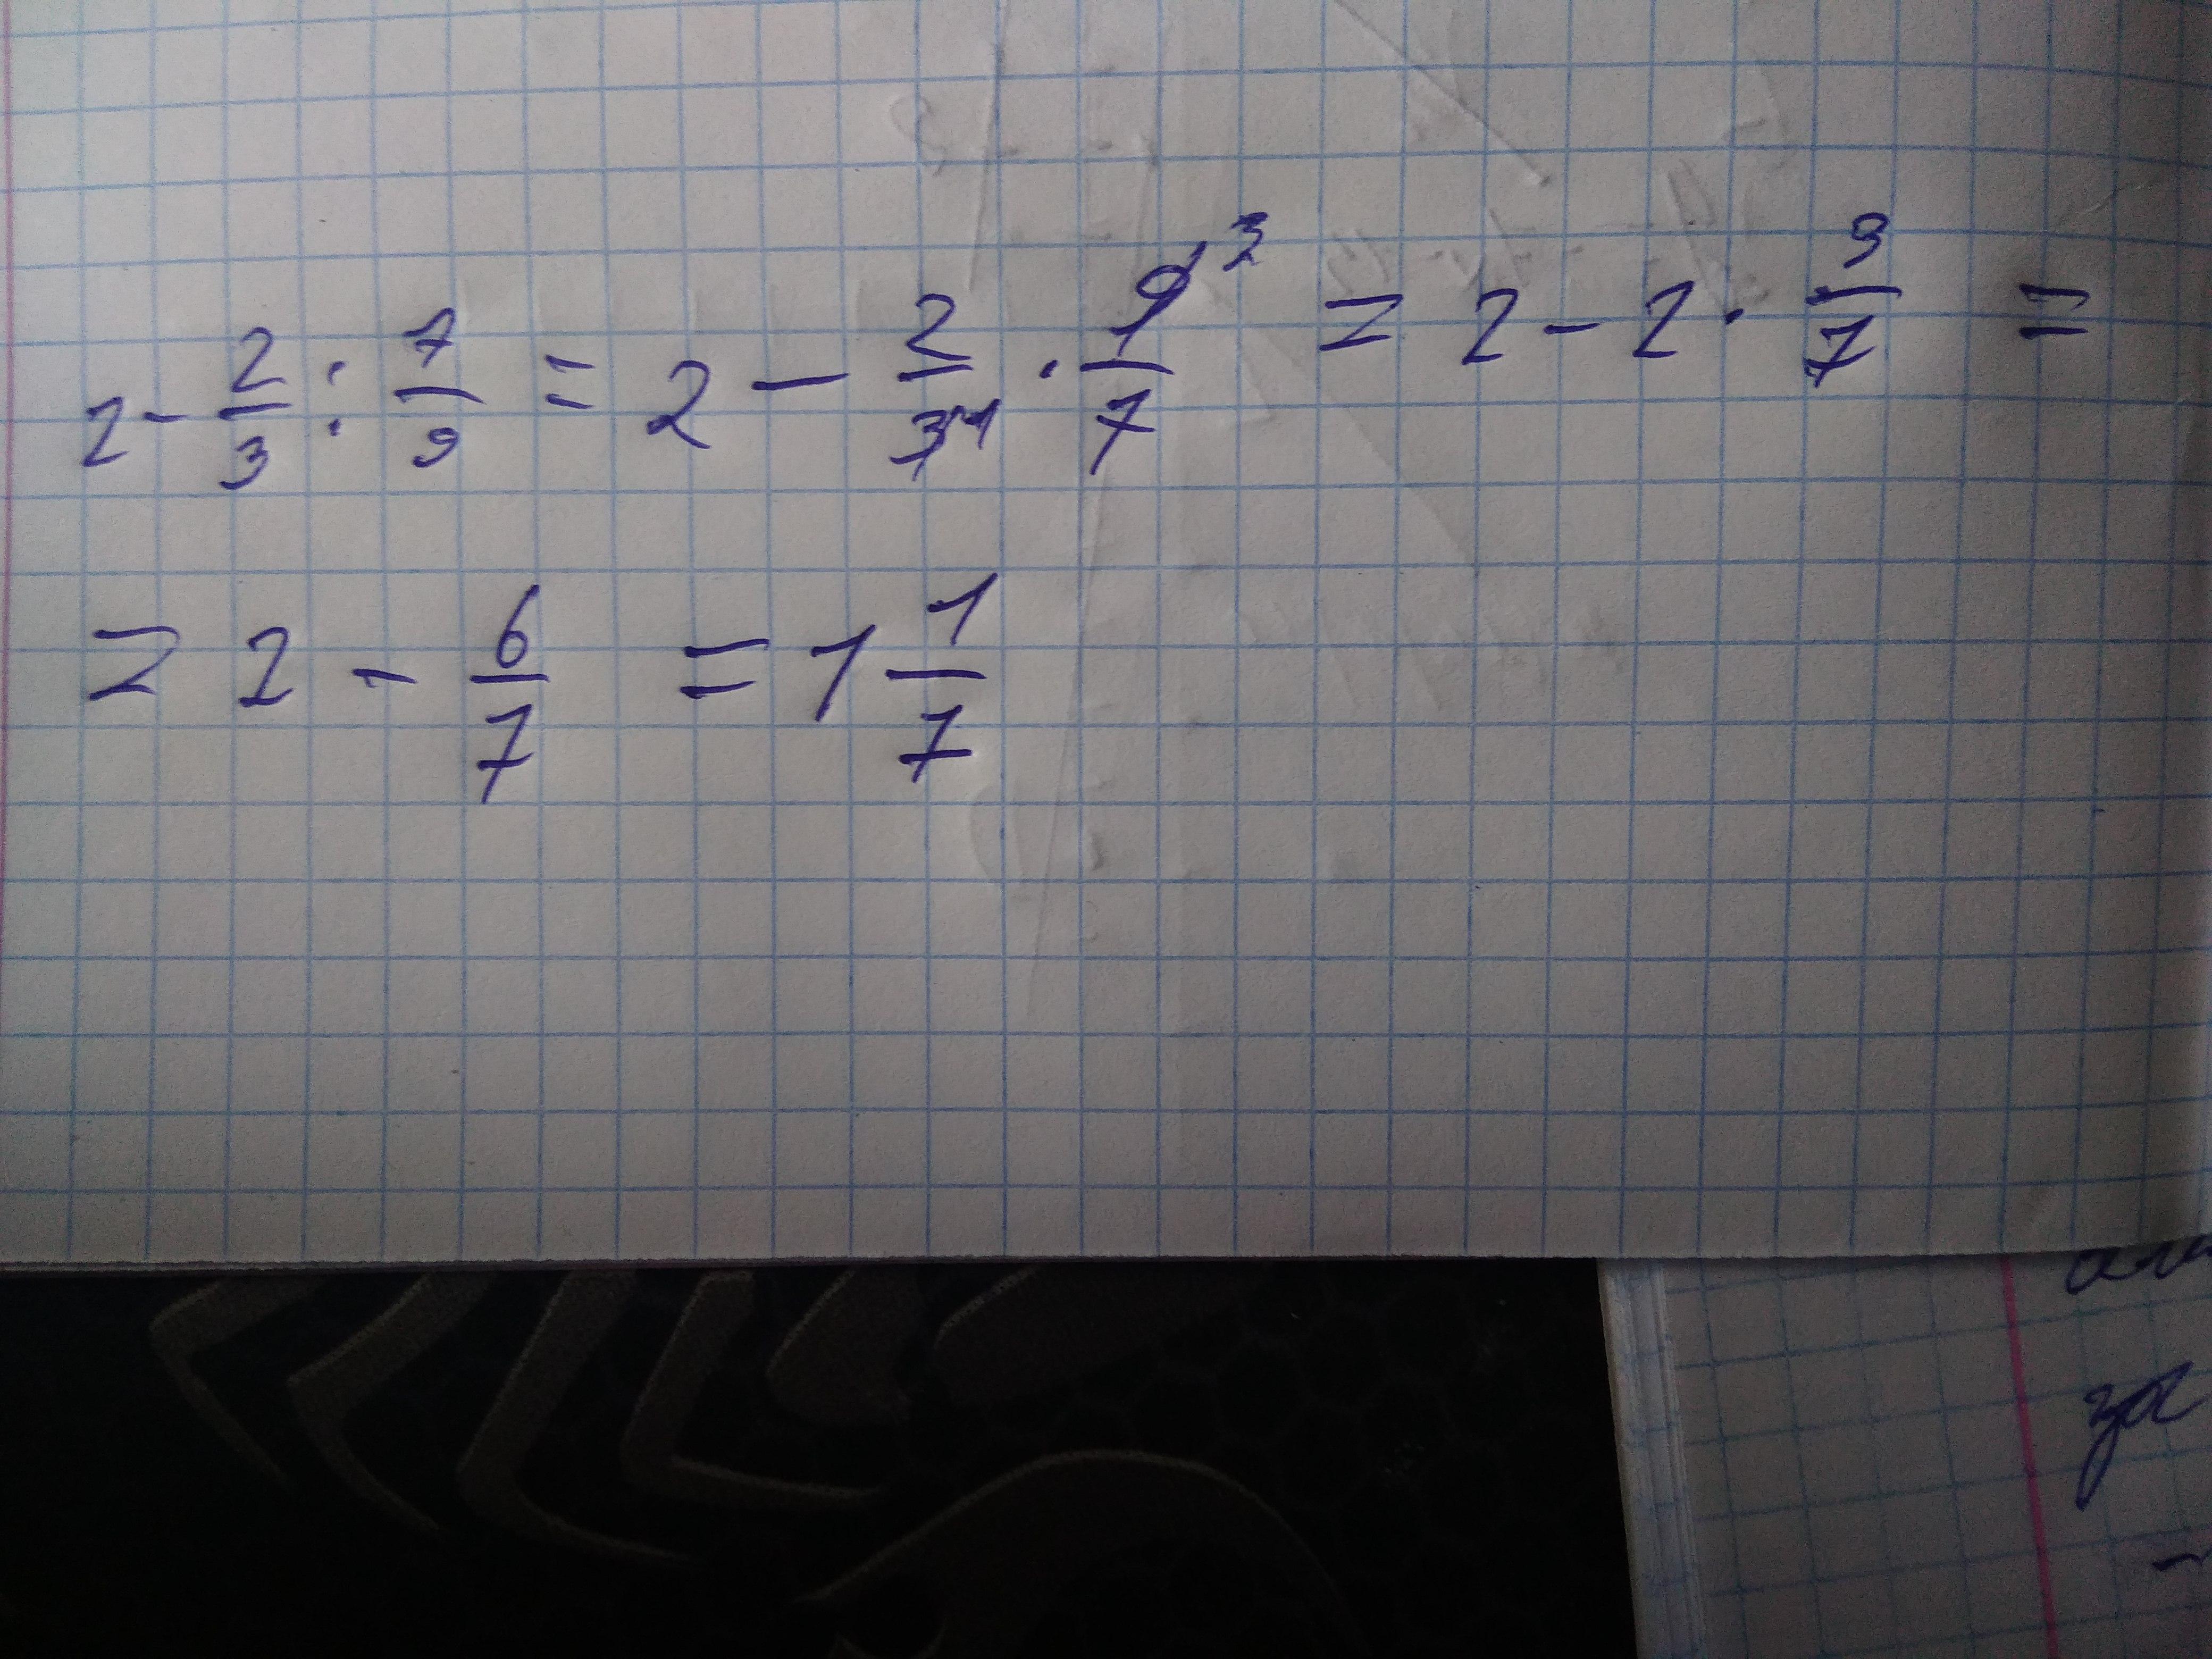 2 - 2/3 : 7/9 = 2 - 2/3 1 · 9/7 3 = 2 - 2 · 3/7 =
= 2 - 6/7 = 1 1/7
за